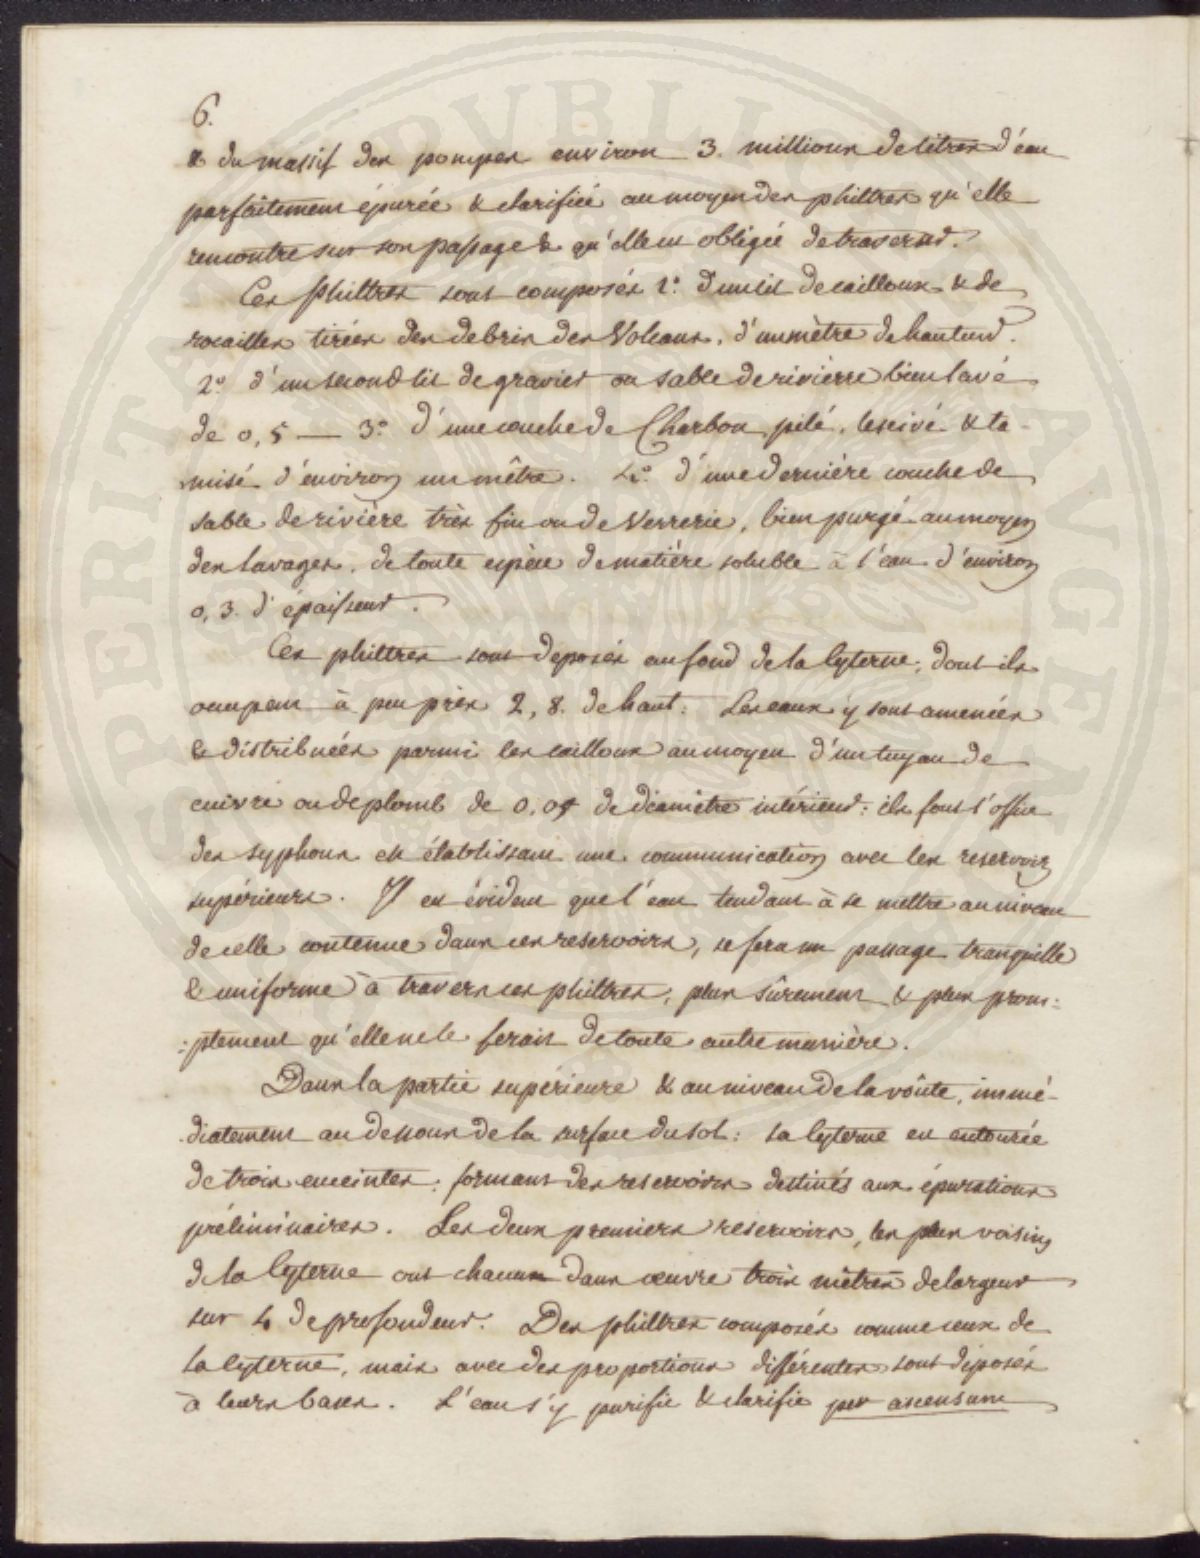 6.
& du massif des pompes environ 3. millions de litres d'eau
parfaitement épurée & clarifiée au moyen des philtres qu'elle
rencontre sur son passage & qu'elle est obligée de traverser.
Ces philtres sont composés 1.° d'un lit de cailloux & de
rocailles tirées des debris des Volcans, d'un mètre de hauteur.
2.° d'un second lit de gravier ou sable de rivierre bien lavé
de 0,5 — 3.° d'une couche de Charbon pilé, lescivé & ta-
misé d'environ un mêtre. 4.° d'une dernière couche de
sable de rivière très fin ou de Verrerie, bien purgé au moyen
des lavages, de toute espèce de matière soluble à l'eau d'environ
0,3. d'épaisseur.
Ces philtres sont deposés au fond de la Cyterne; dont ils
occupent à peu près 2,8. de haut: Les eaux y sont amenées
& distribuées parmi les cailloux au moyen d'un tuyau de
cuivre ou de plomb de 0,04 de diamètre intérieur: ils font l'office
des syphons en établissant une communication avec les reservoirs
supérieurs. Il est évident que l'eau tendant à se mettre au niveau
de celle contenue dans ces reservoirs, se fera un passage tranquille
& uniforme à travers ces philtres; plus sûrement & plus prom:
:ptement qu'elle ne le ferait de toute autre manière.
Dans la partie supérieure & au niveau de la voûte, immé-
diatement au dessous de la surface du sol: la Cyterne est entourée
de trois enceintes: formant des reservoirs destinés aux épurations
préliminaires. Les deux premiers reservoirs, les plus voisins
de la Cyterne ont chacun dans œuvre trois mêtres de largeur
sur 4 de profondeur. Des philtres composés comme ceux de
la cyterne, mais avec des proportions différentes sont déposés
à leurs bases. L'eau s'y purifie & clarifie per ascensum
SPERITAT PVBLICAE AVGEN